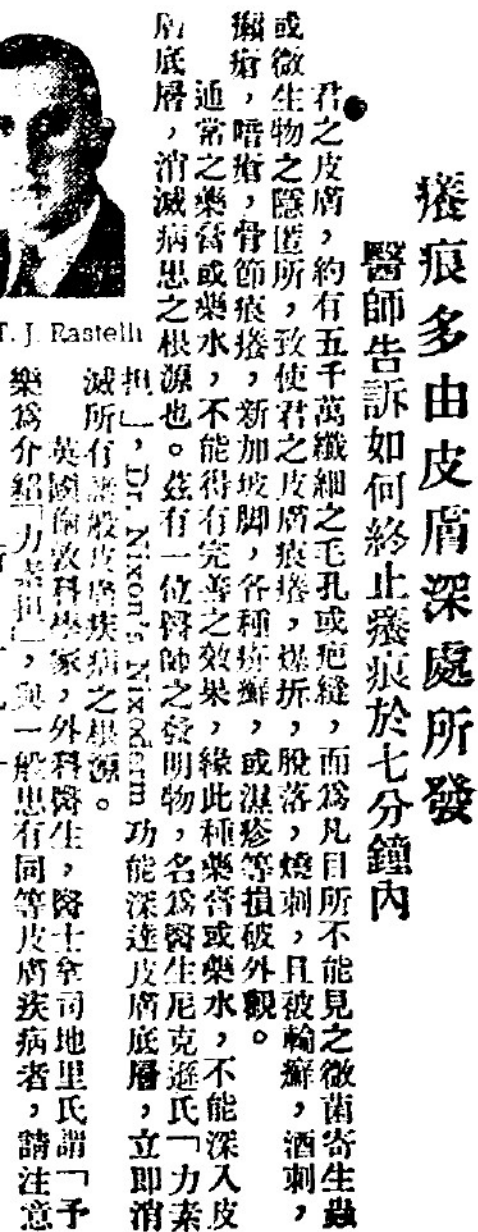 癢痕多由皮膚深處所發
醫師告訴如何終止癢痕於七分鐘內
君之皮膚，約有五千萬纖細之毛孔或疤縫，而為凡目所不能見之微菌寄生蟲
或微生物之隱匿所，致使君之皮膚痕癢，爆拆，脫落，燒刺，且被輪癬，酒刺，
癩瘡，暗瘡，骨節痕癢，新加坡脚，各種疥癬，或濕疹等損破外觀。
通常之藥膏或藥水，不能得有完善之效果，緣此種藥膏或藥水，不能深入皮
膚底層，消滅病患之根源也。茲有一位醫師之發明物，名為醫生尼克遜氏「力素
担」，Dr. Nixon's Nixoderm 功能深達皮膚底層，立即消
滅所有諸般皮膚疾病之根源。
英國倫敦科學家，外科醫生，醫士拿司地里氏謂「予
樂為介紹「力素担」，與一般患有同等皮膚疾病者，請注意
T. J. Rastelli